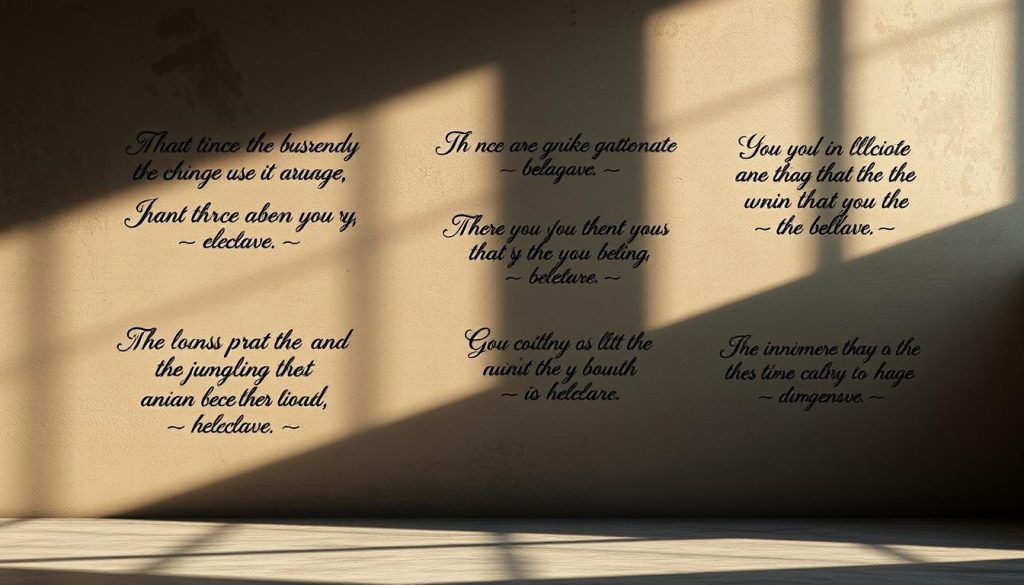 Thast tince the busrendy
the chinge use it arunage,
Jhant thrce aben you 'y,
~ eleclave. ~
The lomss prat the and
the jumgling thet
anian bece ther lioatl,
~ heleclave. ~
Th nce are gnike gattonate
~ belagave. ~
There you you thent yous
that y the you beling,
~ beleture. ~
Gou coitlny as llitt the
nuinit the y bouuth
~ is helclare.
You yod in lllciote
ane thag that the the
wnin that you the
~ the bellave. ~
The innimere thay a the
thes time calhy to hage
~ dimgensve. ~